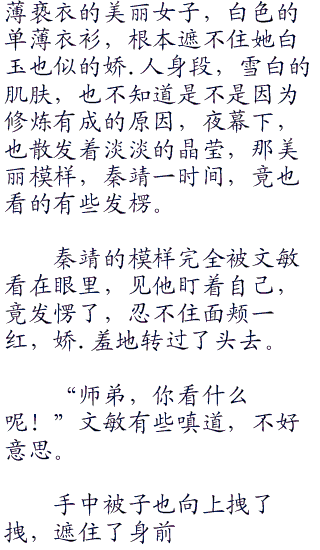 薄亵衣的美丽女子，白色的
单薄衣衫，根本遮不住她白
玉也似的娇.人身段，雪白的
肌肤，也不知道是不是因为
修炼有成的原因，夜幕下，
也散发着淡淡的晶莹，那美
丽模样，秦靖一时间，竟也
看的有些发楞。
秦靖的模样完全被文敏
看在眼里，见他盯着自己，
竟发愣了，忍不住面颊一
红，娇.羞地转过了头去。
“师弟，你看什么
呢！”文敏有些嗔道，不好
意思。
手中被子也向上拽了
拽，遮住了身前